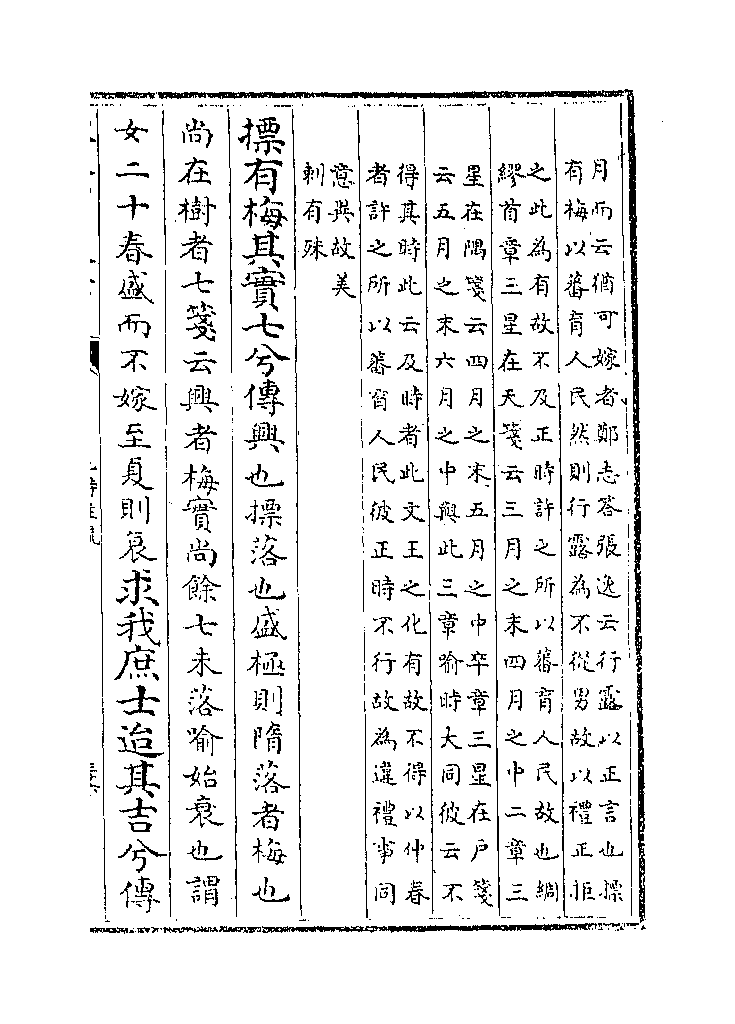 月而云猶可嫁者鄭志荅張逸云行露以正言也摽
有梅以蕃育人民然則行露為不從男故以禮正拒
之此為有故不及正時許之所以蕃育人民故也綢
繆首章三星在天箋云三月之末四月之中二章三
星在隅箋云四月之末五月之中卒章三星在戶箋
云五月之末六月之中與此三章喻時大同彼云不
得其時此云及時者此文王之化有故不得以仲春
者許之所以蕃育人民彼正時不行故為違禮事同
意異故美
刺有殊
摽有梅其實七兮傳興也摽落也盛極則隋落者梅也
尚在樹者七箋云興者梅實尚餘七未落喻始衰也謂
女二十春盛而不嫁至夏則衰求我庶士迨其吉兮傳